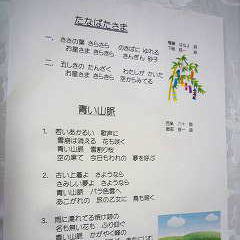 たなばたさま
一、ささの葉 さらさら のきばに ゆれる
お星さま きらきら きんぎん 砂子
二、五しきの たんざく わたしが かいた
お星さま きらきら 空からみてる
青い山脈
1. 若いあかるい 歌声に
雪崩は消える 花も咲く
青い山脈 雪割り桜
空の果て 今日もわれの 夢を呼ぶ
2. 古い上着よ さようなら
さみしい夢よ さようなら
青い山脈 バラ色雲へ
あこがれの 旅の乙女に 鳥も啼く
3. 雨に濡れてる 焼け跡の
名も無い花も ふり仰ぐ
青い山脈 かがやく嶺の